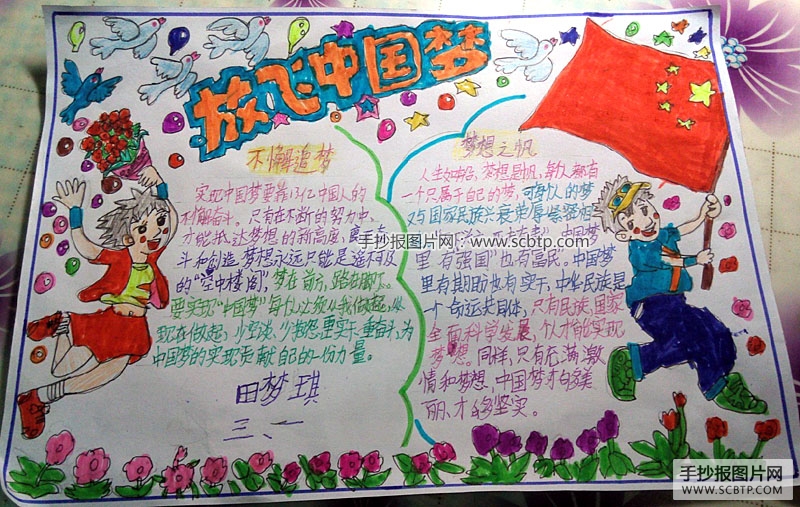 放飞中国梦
不懈追梦
实现中国梦要靠13亿中国人的
不懈奋斗。只有在不断的努力中,
才能抵达梦想的新高度,离
斗和创造,梦想永远只能是遥不可及
的“空中楼阁”,梦在前方,路在脚下。
要实现“中国梦”每个人必须从我做起,从
现在做起,少空谈、少抱怨、要实干、重奋斗、为
中国梦的实现贡献自己的一份力量。
田梦琪
三、一
梦想之帆
人生如船,梦想是帆,每人都有
一个只属于自己的梦,可每个人的梦
与国家民族兴衰荣辱紧密相
中国梦
里“有强国”也有富民。中国梦
里有期盼也有实干,中华民族是
一个命运共同体,只有民族、国家
全面科学发展,个人才能实现
梦想。同样,只有充满激
情和梦想,中国梦才够美
丽、才够坚实。
手抄报图片网:www.scbtp.com
手抄报图片网
WWW.SCBTP.COM